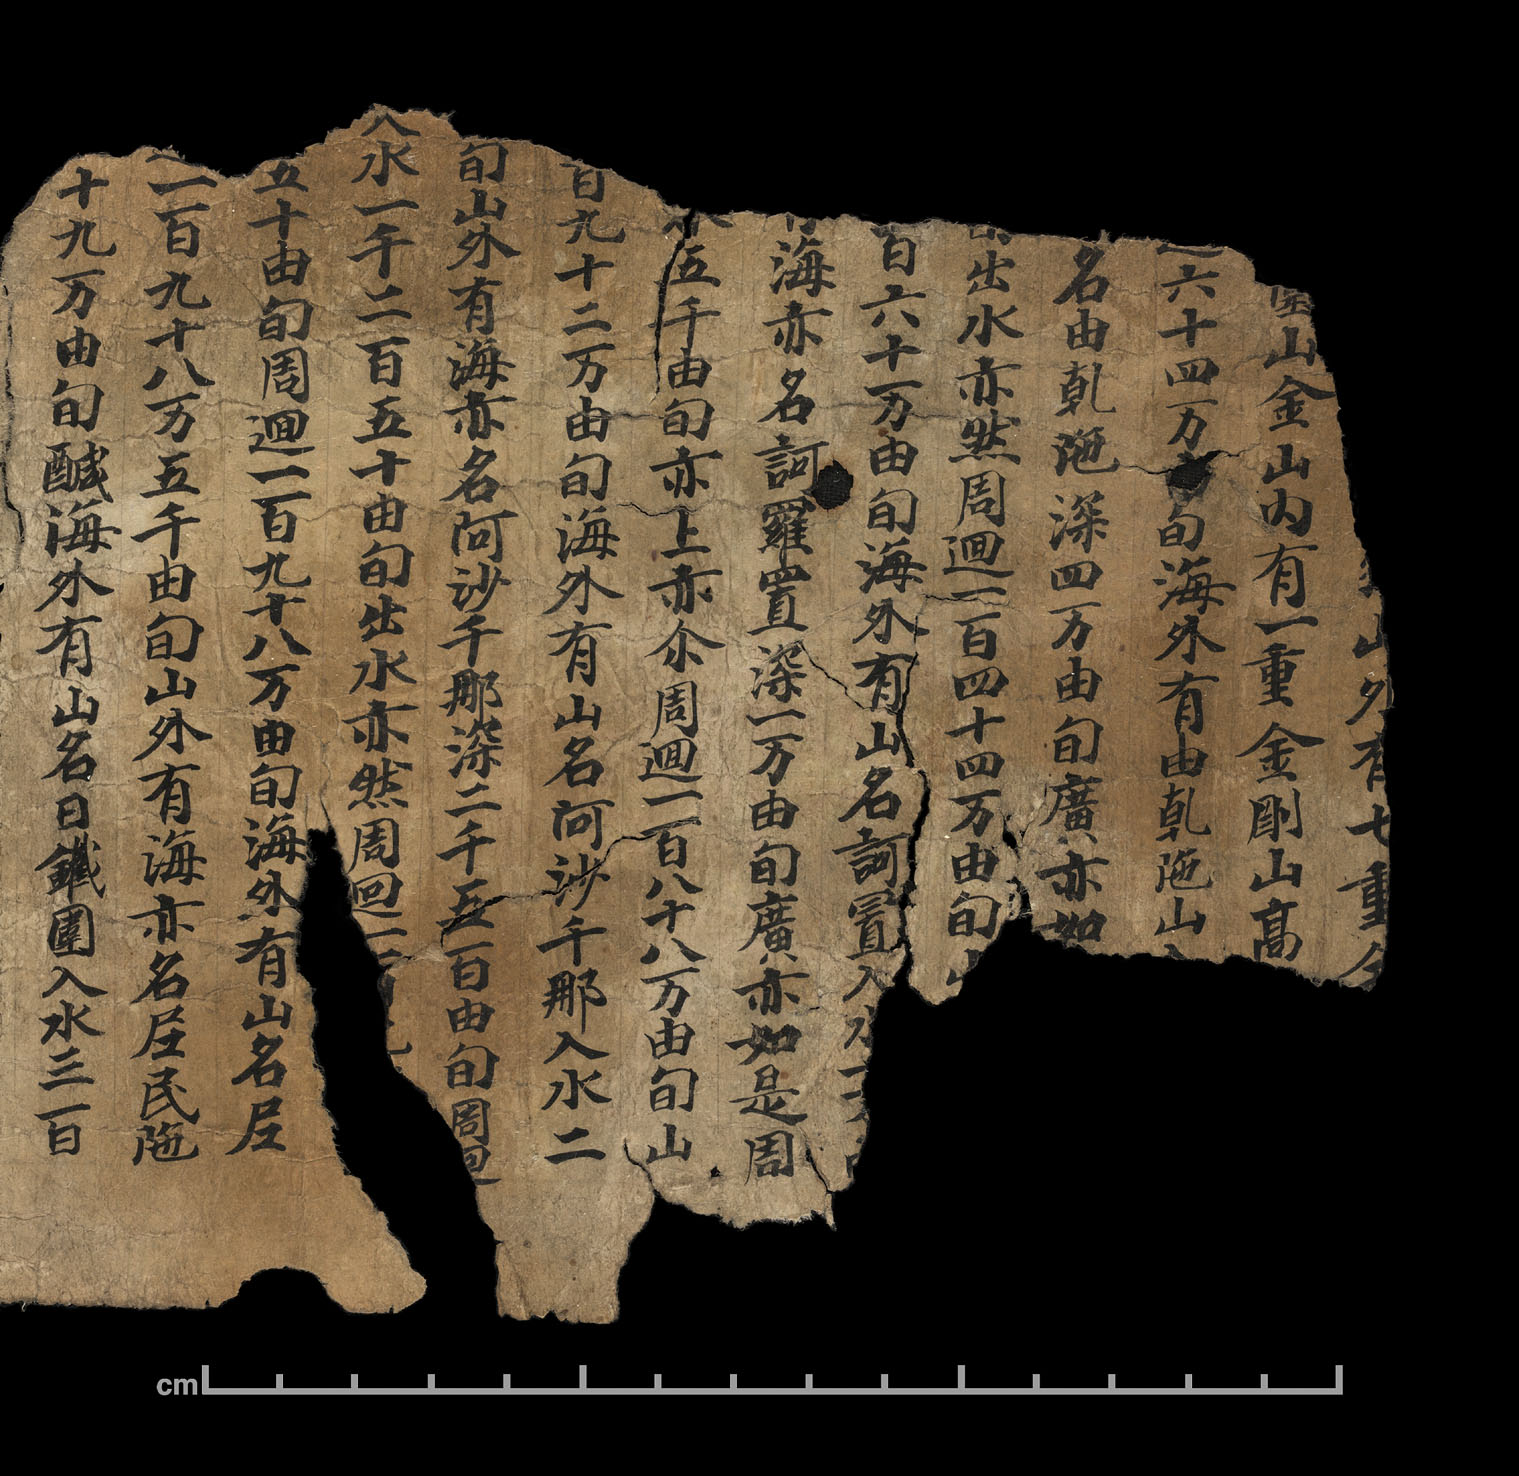 山外有七重金
山金山內有一重金剛山高
六十四万由旬海外有由乹陁山
名由乹陁深四万由旬廣亦如
出水亦然周迴一百四十四万由旬山
百六十万由旬海外有山名訶置入水
海亦名訶羅置深一万由旬廣亦如是周
五千由旬亦上亦尒周迴一百八十八万由旬山
百九十二万由旬海外有山名阿沙千那入水二
旬山外有海亦名阿沙千那深二千五百由旬周迴
入水一千二百五十由旬出水亦然周回一百九
五十由旬周迴一百九十八万由旬海外有山名𡰱
一百九十八万五千由旬山外有海亦名𡰱民陁
十九万由旬醎海外有山名曰鐵圍入水三百